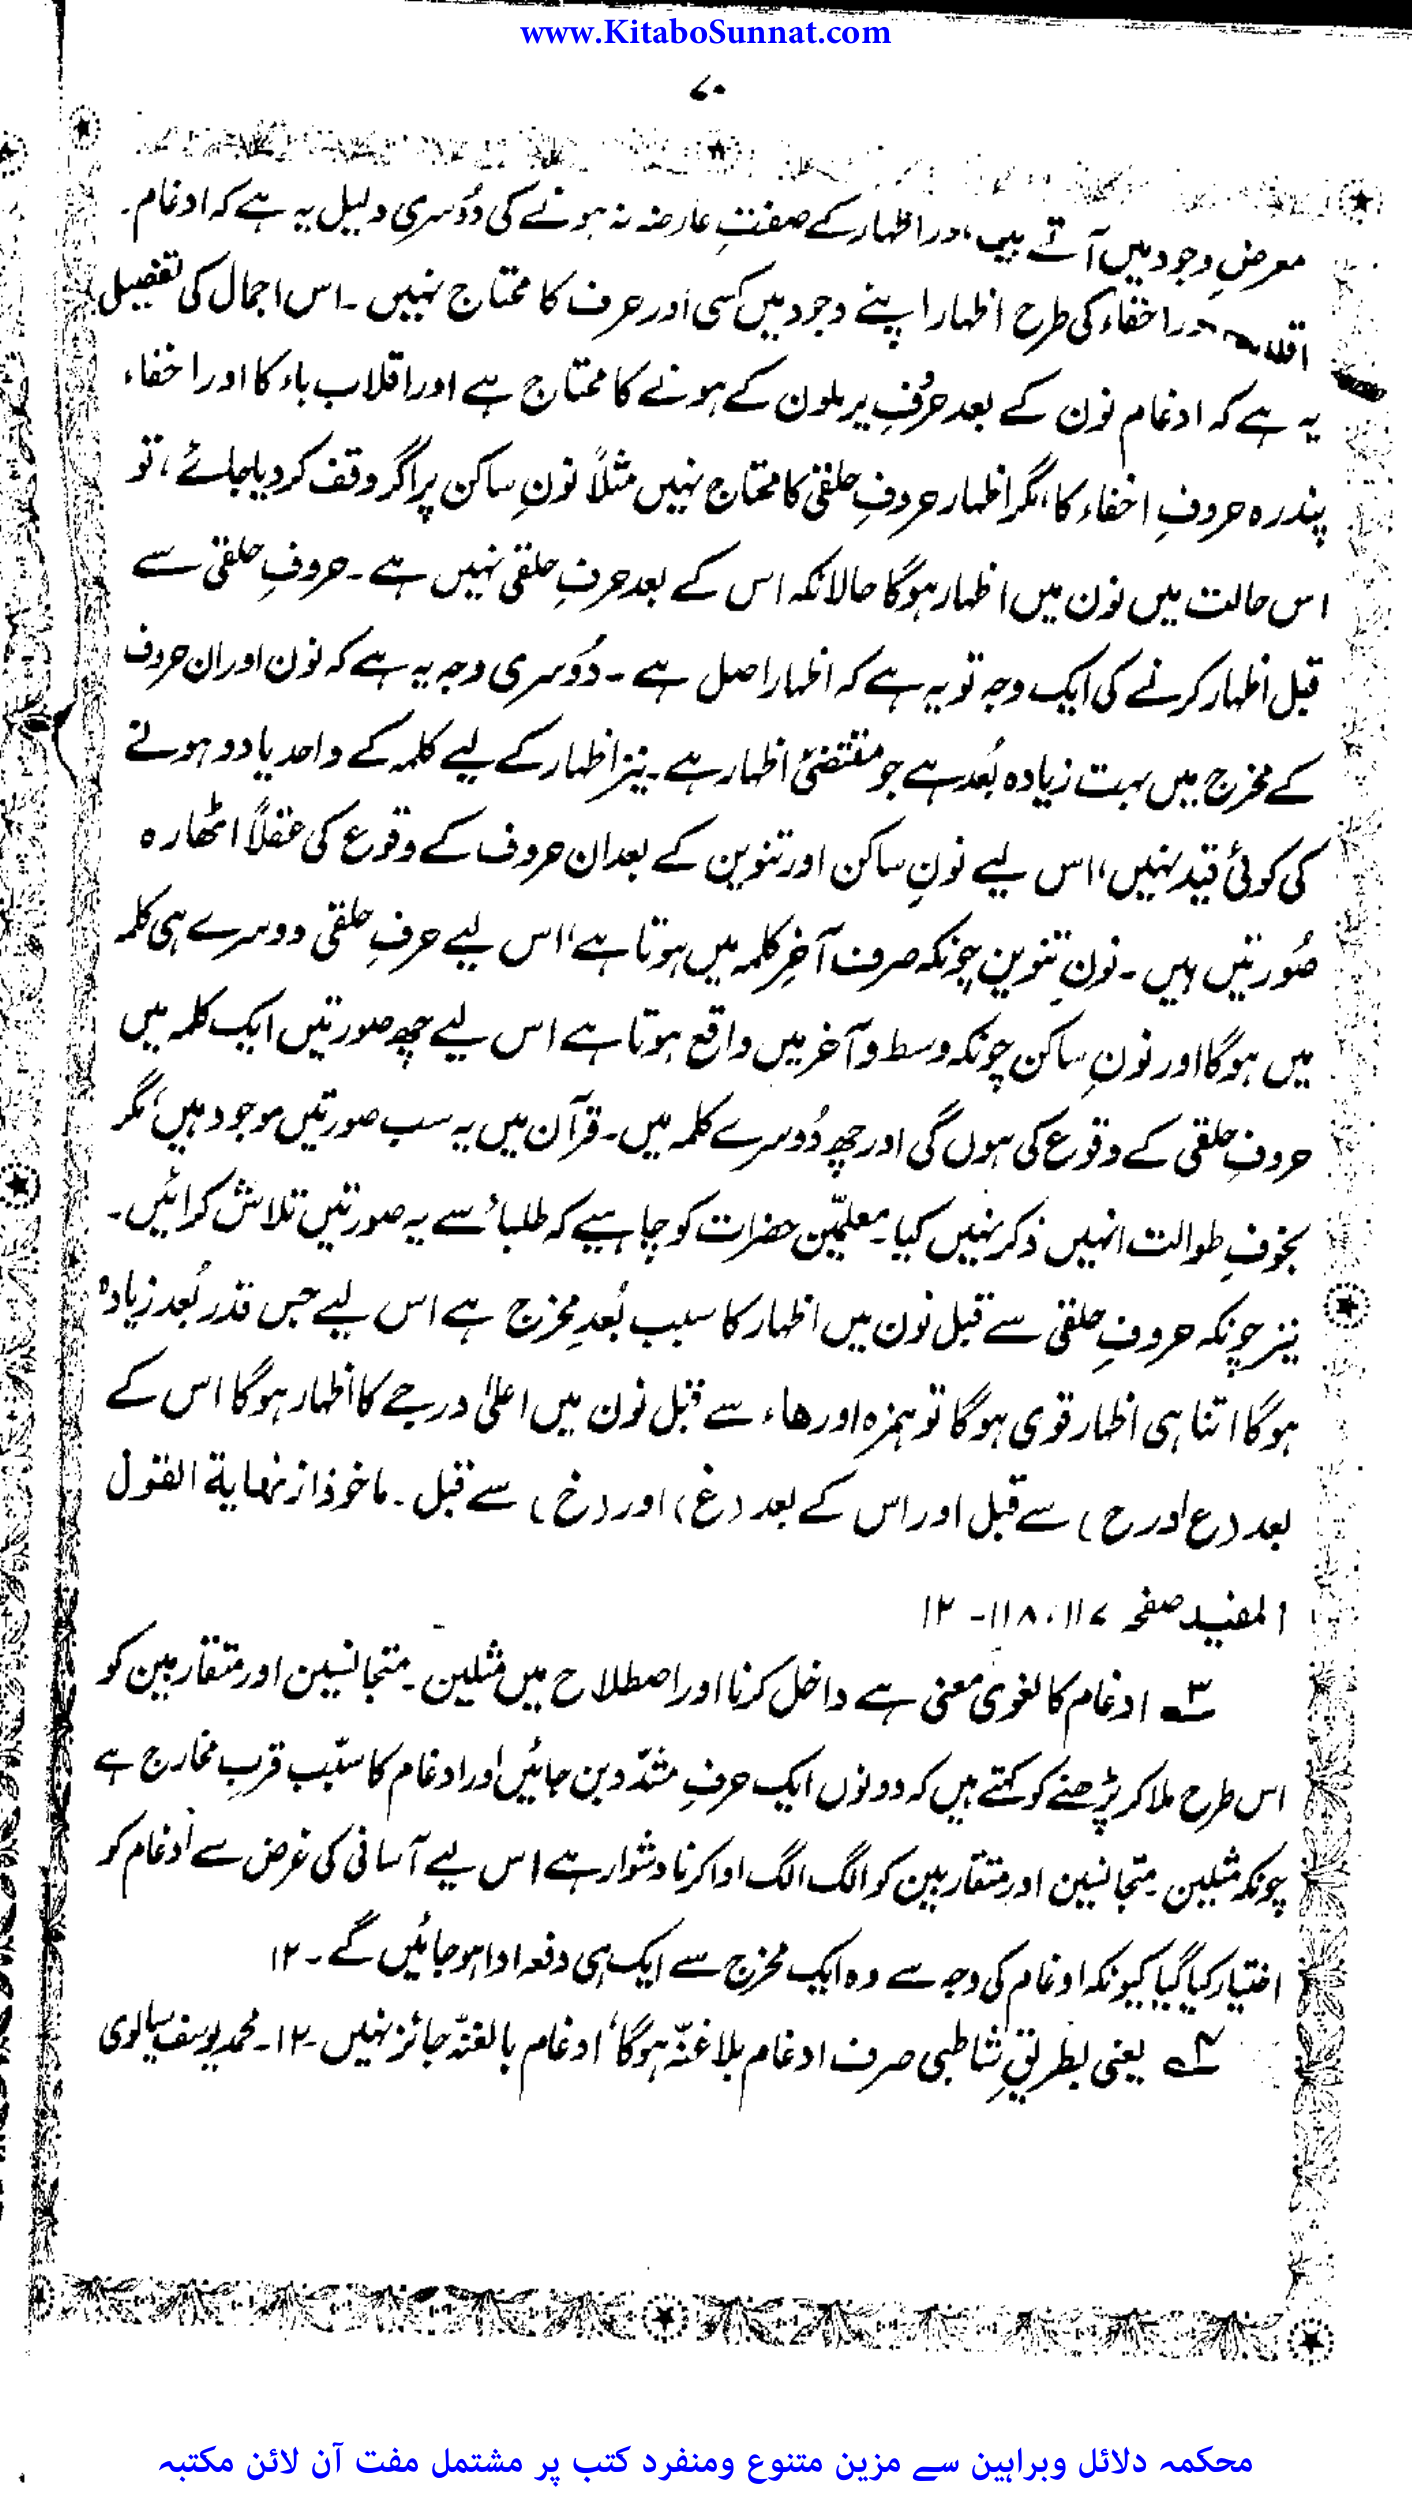 www.KitaboSunnat.com
۷۰
معرضِ وجود میں آتے ہیں، اور اظہار کے صفتِ عارضہ نہ ہونے کی دُوسری دلیل یہ ہے کہ ادغام۔
اقلاب اور اخفاء کی طرح اظہار اپنے وجود میں کسی اور حرف کا محتاج نہیں۔ اس اجمال کی تفصیل
یہ ہے کہ ادغام نون کے بعد حرُفِ یرملون کے ہونے کا محتاج ہے اور اقلاب باء کا اور اخفاء
پندرہ حروفِ اخفاء کا، مگر اظہار حروفِ حلقی کا محتاج نہیں مثلاً نونِ ساکن پر اگر وقف کر دیا جائے، تو
اس حالت میں نون میں اظہار ہوگا حالانکہ اس کے بعد حرفِ حلقی نہیں ہے۔ حروفِ حلقی سے
قبل اظہار کرنے کی ایک وجہ تو یہ ہے کہ اظہار اصل ہے۔ دُوسری وجہ یہ ہے کہ نون اور ان حروف
کے مخرج میں بہت زیادہ بُعد ہے جو مقتضیٔ اظہار ہے۔ نیز اظہار کے لیے کلمہ کے واحد یا دو ہونے
کی کوئی قید نہیں، اس لیے نونِ ساکن اور تنوین کے بعد ان حروف کے وقوع کی عقلاً اٹھارہ
صُورتیں ہیں۔ نونِ تنوین چونکہ صرف آخرِ کلمہ میں ہوتا ہے، اس لیے حرفِ حلقی دوسرے ہی کلمہ
میں ہوگا اور نونِ ساکن چونکہ وسط و آخر میں واقع ہوتا ہے اس لیے چھ صورتیں ایک کلمہ میں
حروفِ حلقی کے وقوع کی ہوں گی اور چھ دُوسرے کلمہ میں۔ قرآن میں یہ سب صورتیں موجود ہیں، مگر
بخوفِ طوالت انہیں ذکر نہیں کیا۔ معلمّین حضرات کو چاہیے کہ طلباء سے یہ صورتیں تلاش کرائیں۔
نیز چونکہ حروفِ حلقی سے قبل نون میں اظہار کا سبب بُعدِ مخرج ہے اس لیے جس قدر بُعد زیادہ
ہوگا اتنا ہی اظہار قوی ہوگا تو ہمزہ اور ھاء سے قبل نون میں اعلیٰ درجے کا اظہار ہوگا اس کے
بعد (ع اور ح) سے قبل اور اس کے بعد (غ) اور (خ) سے قبل۔ ماخوذ از نہایة القول
المفید صفحہ ۱۱۷، ۱۱۸۔ ۱۲
۳؎ ادغام کا لغوی معنی ہے داخل کرنا اور اصطلاح میں مثلین۔ متجانسین اور متقاربین کو
اس طرح ملا کر پڑھنے کو کہتے ہیں کہ دونوں ایک حرفِ مشدّد بن جائیں اور ادغام کا سبّب قربِ مخارج ہے
چونکہ مثلین۔ متجانسین اور متقاربین کو الگ الگ ادا کرنا دشوار ہے اس لیے آسانی کی غرض سے ادغام کو
اختیار کیا گیا کیونکہ ادغام کی وجہ سے وہ ایک مخرج سے ایک ہی دفعہ ادا ہو جائیں گے۔ ۱۲
۴؎ یعنی بطریقِ شاطبی صرف ادغام بلا غنّہ ہوگا، ادغام بالغنّہ جائز نہیں۔ ۱۲۔ محمد یوسف سیالوی
محکمہ دلائل وبراہین سے مزین متنوع ومنفرد کتب پر مشتمل مفت آن لائن مکتبہ